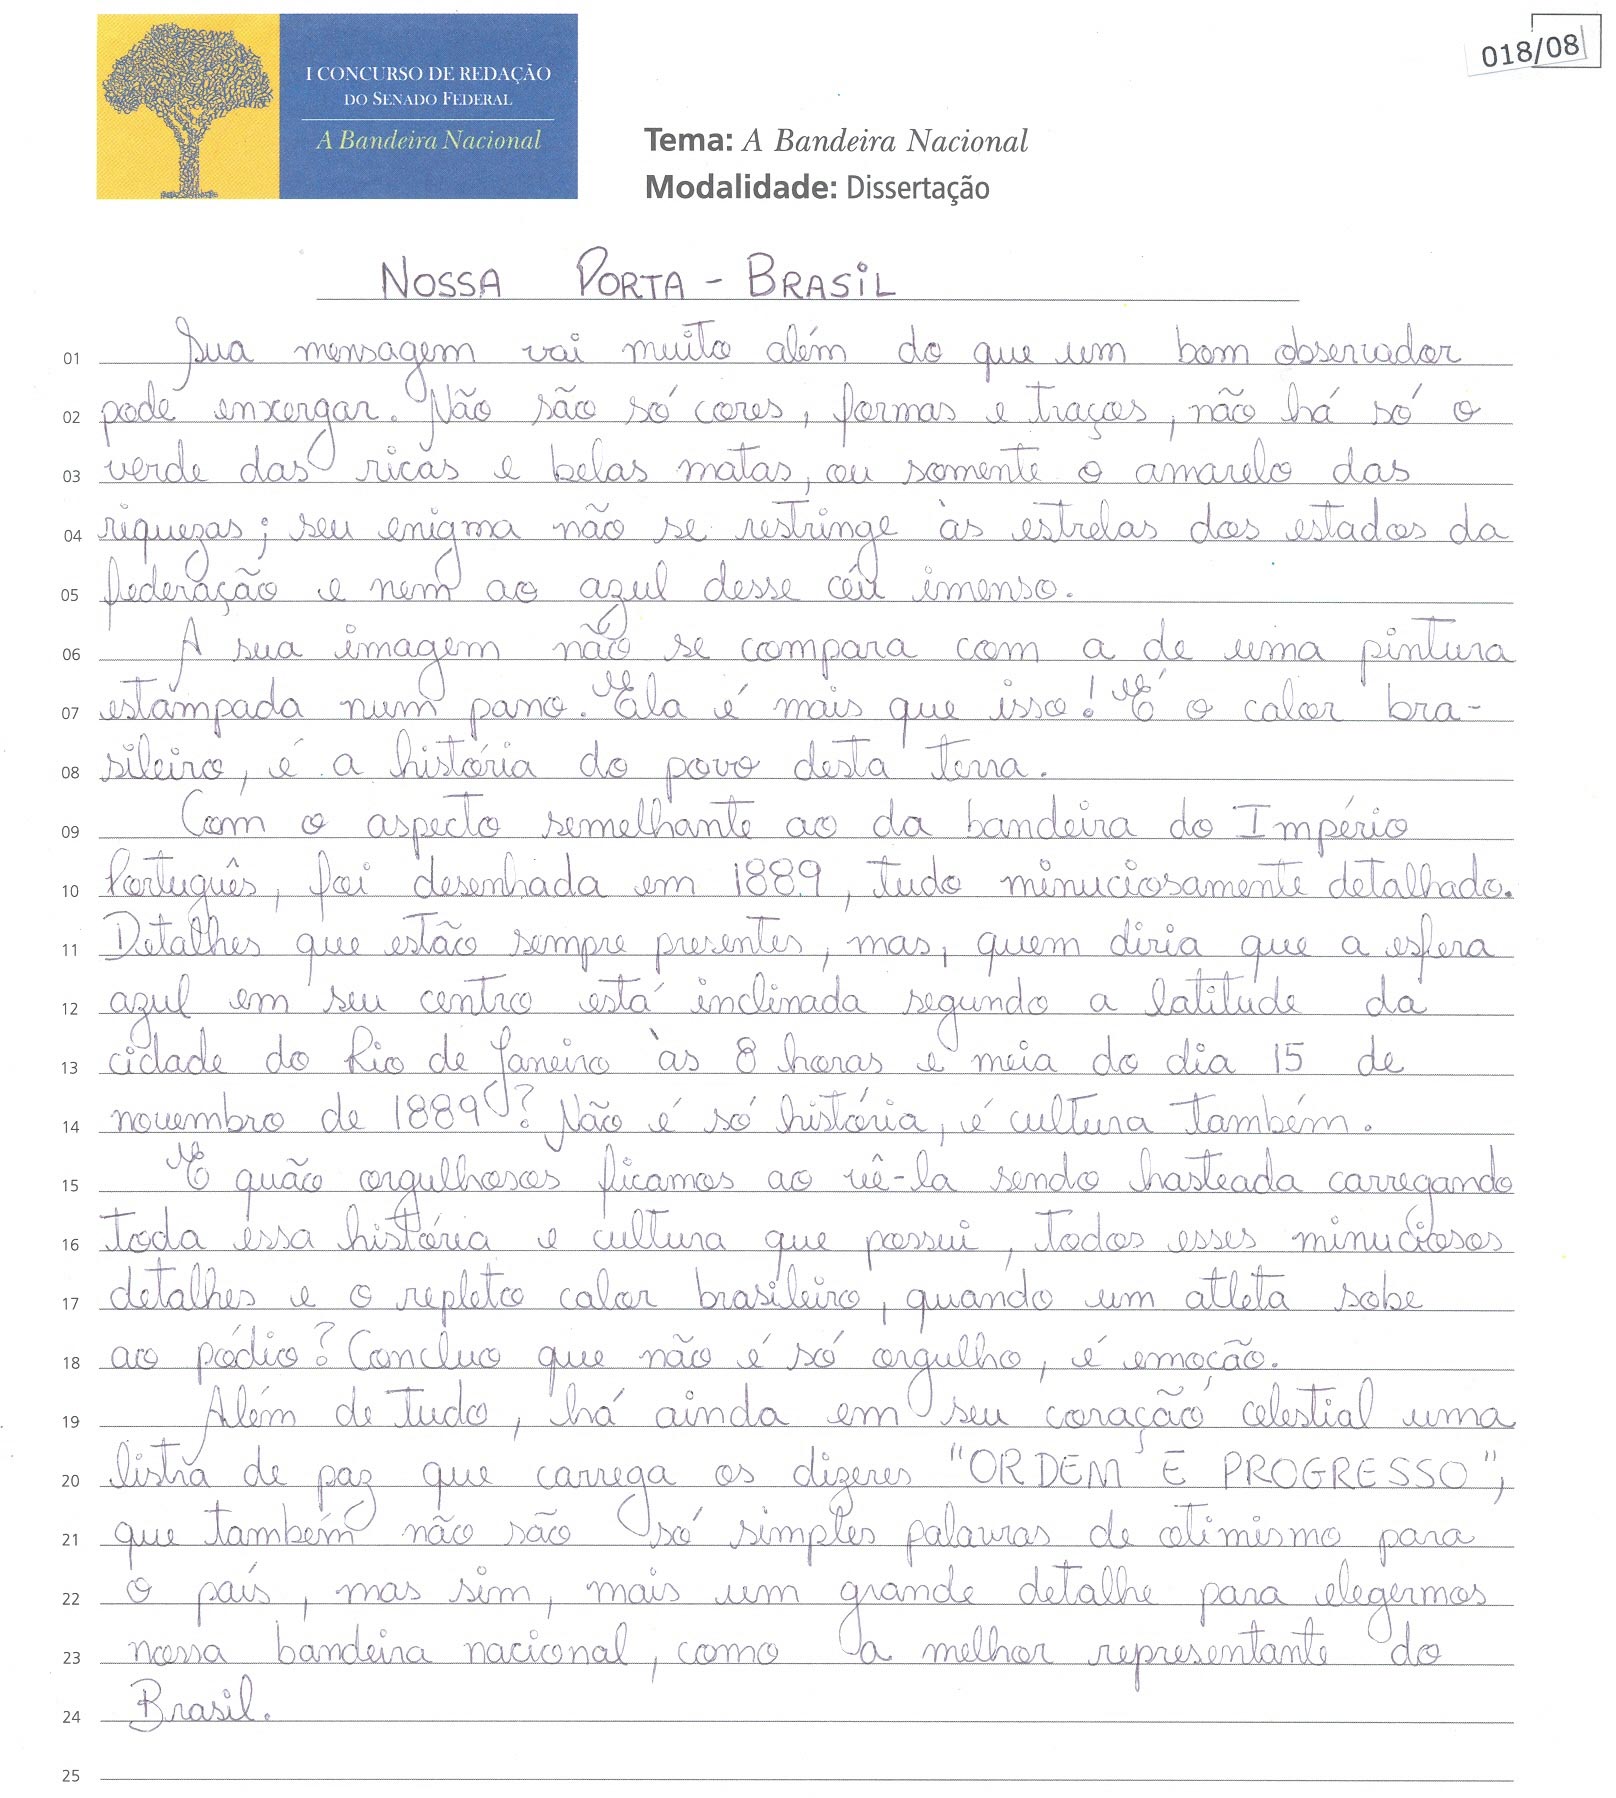 018/08
I CONCURSO DE REDAÇÃO
DO SENADO FEDERAL
A Bandeira Nacional
Tema: A Bandeira Nacional
Modalidade: Dissertação
NOSSA PORTA-BRASIL
01 Sua mensagem vai muito além do que um bom observador
02 pode enxergar. Não são só cores, formas e traços, não há só o
03 verde das ricas e belas matas, ou somente o amarelo das
04 riquezas; seu enigma não se restringe às estrelas dos estados da
05 federação e nem ao azul desse céu imenso.
06 A sua imagem não se compara com a de uma pintura
07 estampada num pano. Ela é mais que isso! É o calor bra-
08 sileiro, é a história do povo desta terra.
09 Com o aspecto semelhante ao da bandeira do Império
10 Português, foi desenhada em 1889, tudo minuciosamente detalhado.
11 Detalhes que estão sempre presentes, mas, quem diria que a esfera
12 azul em seu centro está inclinada segundo a latitude da
13 cidade do Rio de Janeiro às 8 horas e meia do dia 15 de
14 novembro de 1889? Não é só história, é cultura também.
15 E quão orgulhosos ficamos ao vê-la sendo hasteada carregando
16 toda essa história e cultura que possui, todos esses minuciosos
17 detalhes e o repleto calor brasileiro, quando um atleta sobe
18 ao pódio? Concluo que não é só orgulho, é emoção.
19 Além de tudo, há ainda em seu coração celestial uma
20 listra de paz que carrega os dizeres "ORDEM E PROGRESSO",
21 que também não são só simples palavras de otimismo para
22 o país, mas sim, mais um grande detalhe para elegermos
23 nossa bandeira nacional, como a melhor representante do
24 Brasil.
25